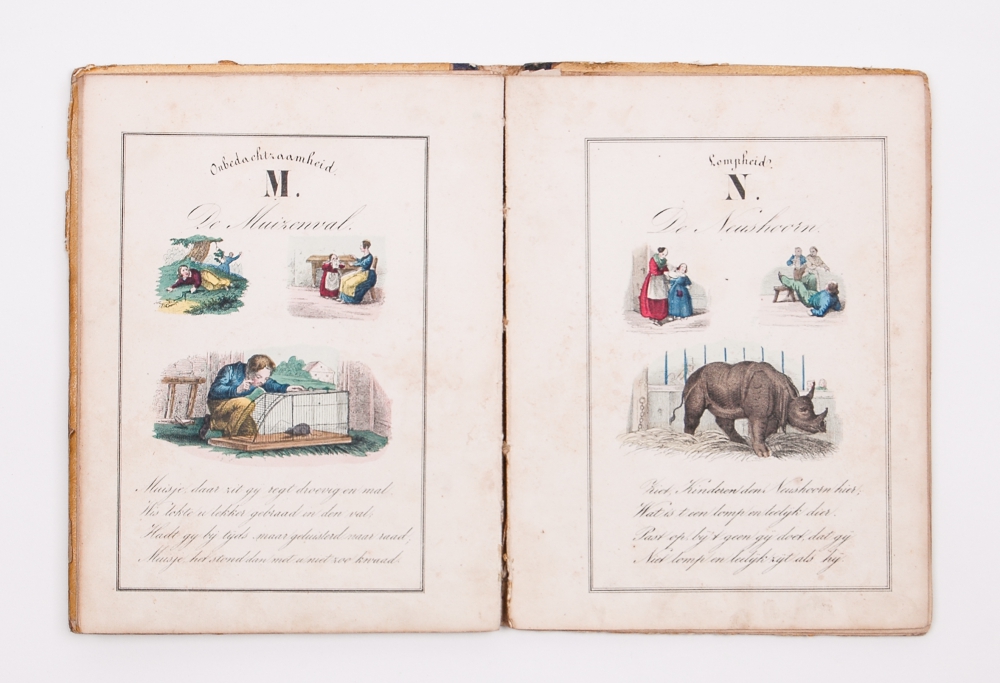 Onbedachtzaamheid.
M.
De Muizenval.
Muisje, daar zit gy regt droevig en mal,
His lokte u lekker gebraad in den val;
Hadt gy by tyds maar geluisterd naar raad,
Muisje, het stond dan met u niet zoo kwaad.
Lompheid,
N.
De Neushoorn.
Ziet, Kinderen den Neushoorn hier,
Wat is t een lomp en leelyk dier.
Past op, by 't geen gy doet, dat gy
Niet lomp en leelyk zyt als hy.